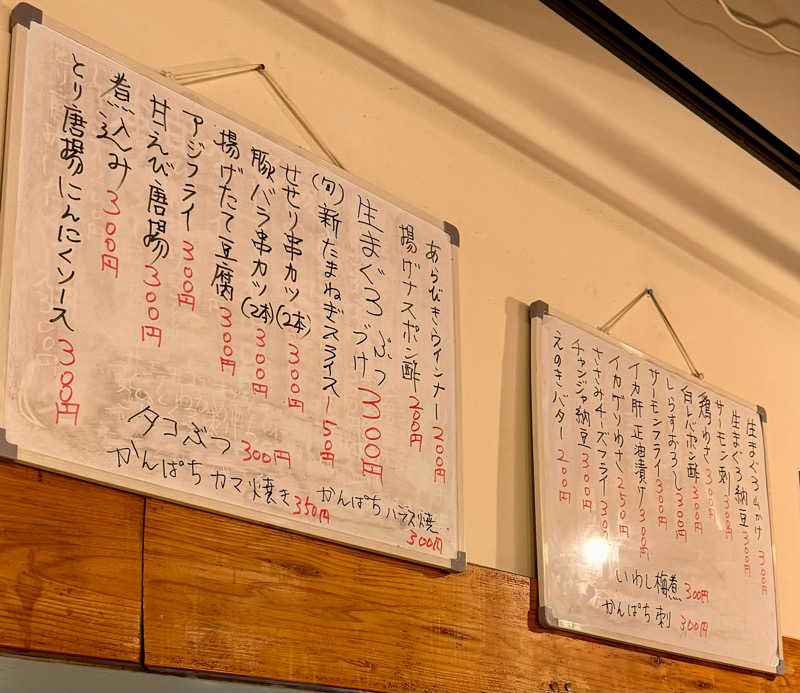 あらびきウインナー 200円
揚げナスポン酢 200円
生まぐろぶつ
づけ 300円
(旬)新たまねぎスライス 150円
せせり串カツ(2本) 300円
豚バラ串カツ(2本) 300円
揚げたて豆腐 300円
アジフライ 300円
甘えび唐揚 300円
煮込み 300円
とり唐揚にんにくソース 300円
タコぶつ 300円
かんぱちガマ焼き 350円
かんぱちハラス焼 300円
生まぐろ山かけ 300円
生まぐろ納豆 300円
サーモン刺 300円
鶏わさ 300円
白レバポン酢 300円
しらすおろし 300円
サーモンフライ 300円
イカ肝正油漬け 300円
イカゲソわさ 250円
ささみチーズフライ 300円
チャンジャ納豆 300円
えのきバター 200円
いわし梅煮 300円
かんぱち刺 300円